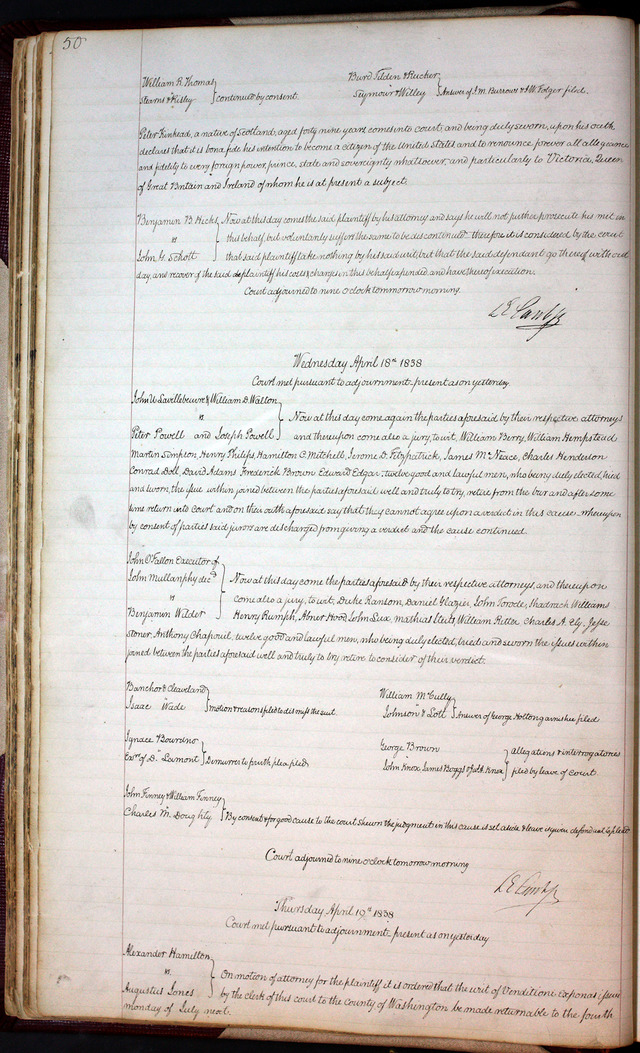 50
William R. Thomas
vs
Stearns & Risley } continued by consent.
Burd Tilden & Rucker
vs
Seymour & Willey } Answer of J. M. Burrows & A W. Folger filed.
Peter Kinhead, a native of Scotland, aged forty nine years comes into court, and being duly sworn, upon his oath
declares that it is bona fide his intention to become a citizen of the United States and to renounce forever all allegiance
and fidelity to every foreign power, prince, state and sovereignty whatsoever, and particularly to Victoria, Queen
of Great Britain and Ireland of whom he is at present a subject.
Benjamin B Hicks } Now at this day comes the said plaintiff by his attorney and says he will not further prosecute his suit in
vs this behalf, but voluntarily suffers the same to be discontinued. therefore it is considered by the court
John G. Schott that said plaintiff take nothing by his said writ, but that the said defendant go thereof without
day, and recover of the said plaintiff his costs & charges in this behalf expended and have thereof execution.
Court adjourned to nine o'clock tommorrow morning.
Wednesday April 18th 1838
Court met pursuant to adjournment - present as on yesterday.
John U. Savillebeuvre & William D. Walton
vs } Now at this day come again the parties aforesaid by their respective attorneys
Peter Powell and Joseph Powell and thereupon come also a jury, to wit, William Berry, William Hempstead
Martin Simpson, Henry Philips, Hamilton C. Mitchell, Jerome D. Fitzpatrick, James McNeace, Charles Henderson
Conrad Doll, David Adams Frederick Brown Edward Edgar, twelve good and lawful men, who being duly elected, tried
and sworn, the issue within joined between the parties aforesaid well and truly to try, retire from the bar and after some
time return into court and on their oath aforesaid say that they cannot agree upon a verdict in this cause. whereupon
by consent of parties said jurors are discharged from giving a verdict and the cause continued.
John O'Fallon Executor of
John Mullanphy decd } Now at this day come the parties aforesaid by their respective attorneys, and thereupon
vs come also a jury, to wit, Duke Ransom, Daniel Glazier, John Torode, Shadrach Williams
Benjamin Wilder Henry Rumph, Abner Hood John Lux, mathias William Ritter Charles A. Ely, Jesse
Stoner Anthony Chapouil, twelve good and lawful men, who being duly elected, tried and sworn the issues within
joined between the parties aforesaid well and truly to try retire to consider of their verdict.
Banchor & Cleaveland
vs
Isaac Wade } motion & reasons filed to dismiss the suit.
William McCully
vs
Johnson & Lott } Answer of George Hottong garnishee filed
Ignace Bourino
vs
Exr of D. Lamont } Demurrer to fourth plea filed
George Brown
vs
John Knox James Boggs & Knox } allegations & interrogatories
filed by leave of court
John Finney & William Finney
vs
Charles M. Doughty } By consent & for good cause to the court shewn the judgment in this cause is set aside & leave is given defendant to plead
Court adjourned to nine o'clock tomorrow morning
Thursday April 19th 1838
Court met pursuant to adjournment - present as on yesterday
Alexander Hamilton
vs } On motion of attorney for the plaintiff it is ordered that the writ of Venditioni Exponas issued
Augustus Jones by the clerk of this court to the County of Washington be made returnable to the fourth
monday of July next.